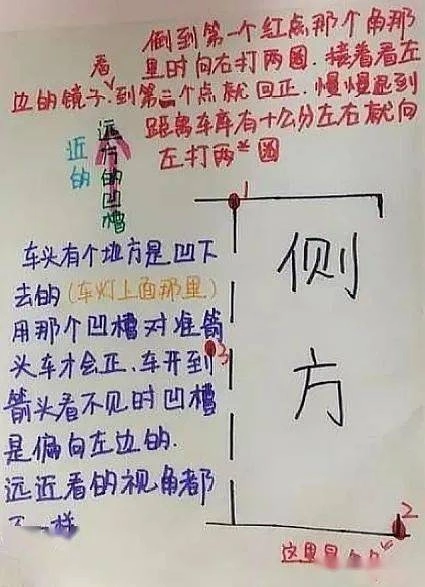 倒到第一个红点那个角那
里时向右打两圈.接着看左
边的镜子.看到第三个点就回正.慢慢退到
距离车库有十公分左右就向
左打两半圈
近的
远方的凹槽
1
车头有个地方是凹下
去的(车灯上面那里)
用那个凹槽对准箭
头车才会正、车开到
箭头看不见时凹槽
是偏向左边的.
远近看的视角都
不一样
3
侧
方
2
这里是个